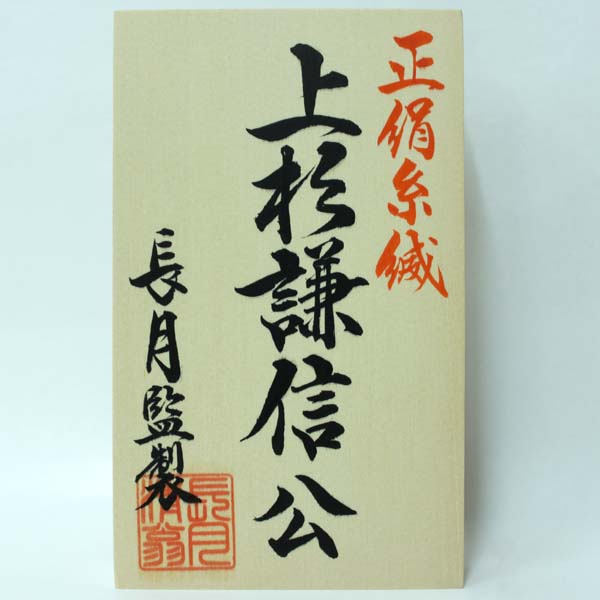 正絹糸縅
上杉謙信公
長月監製